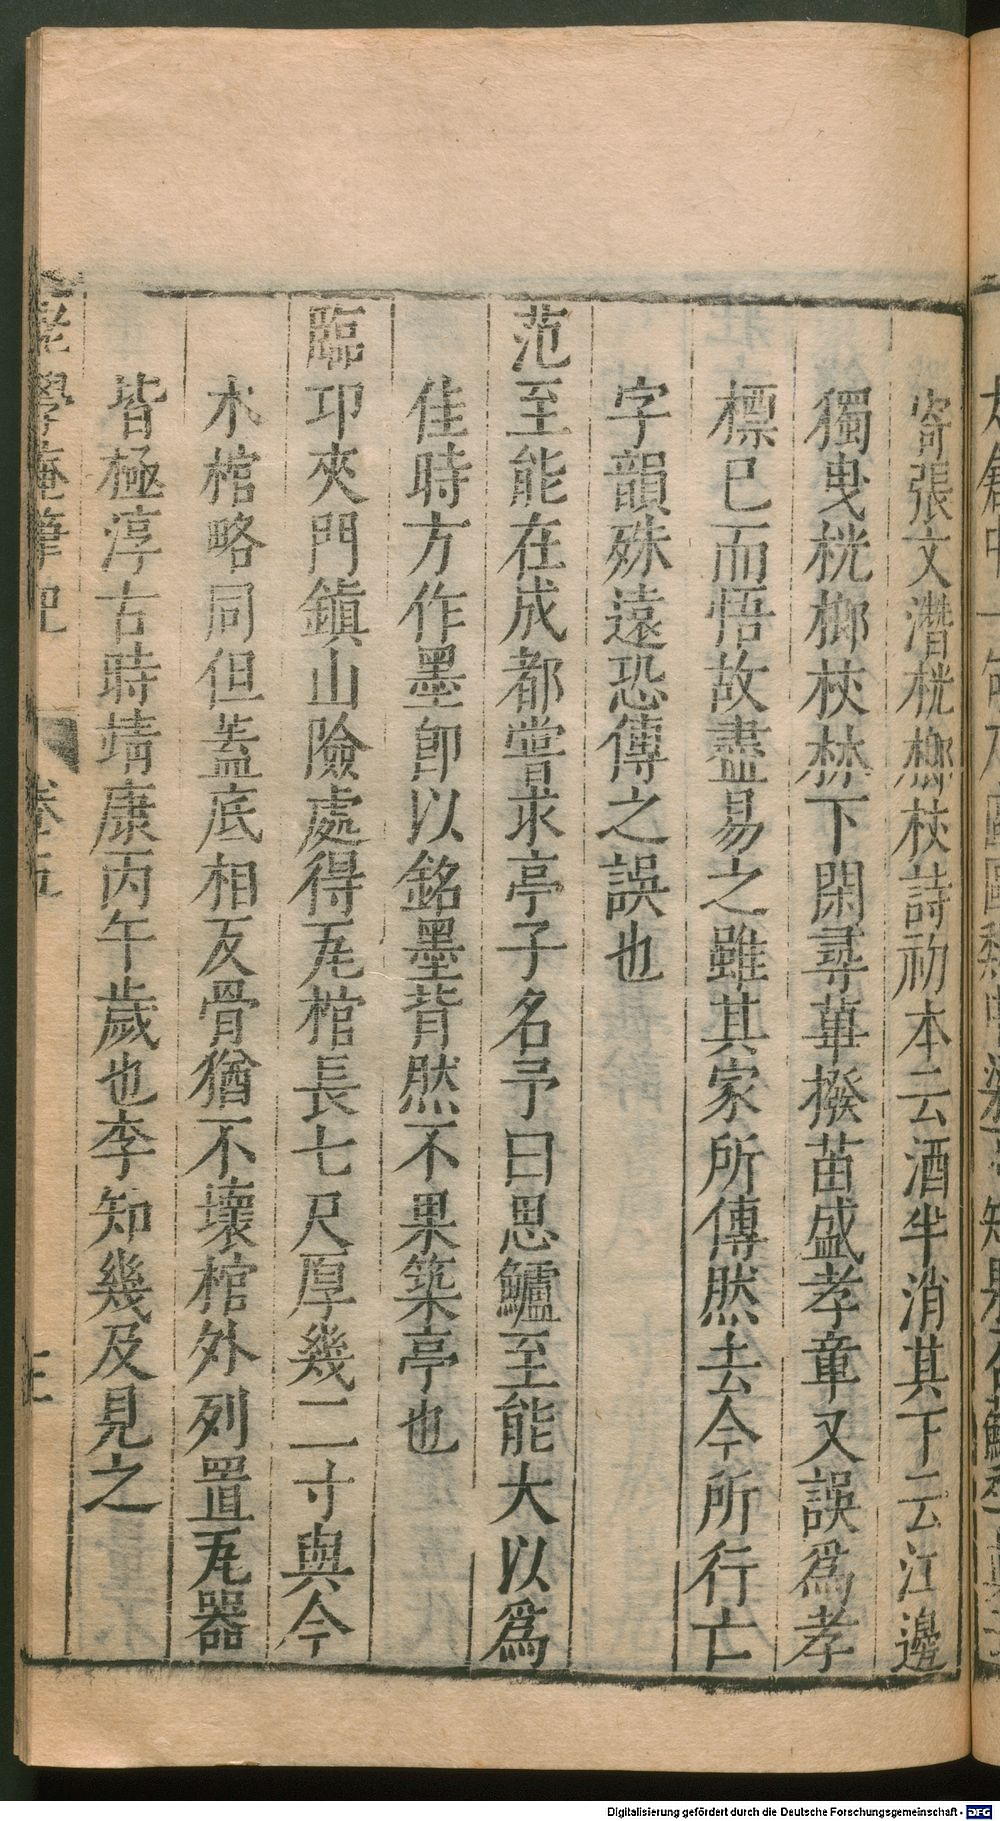 寄張文濳桄榔杖詩初本云酒半消其下云江邊
獨曳桄榔杖林下閑尋蓽撥苗盛孝章又誤爲孝
標已而悟故盡易之雖其家所傳然去今所行亡
字韻殊遠恐傳之誤也
范至能在成都嘗求亭子名予曰思鱸至能大以爲
佳時方作墨卽以銘墨背然不果築亭也
臨卭夾門鎮山險處得瓦棺長七尺厚幾二寸與今
木棺略同但蓋底相反骨猶不壞棺外列置瓦器
皆極淳古時靖康丙午歲也李知幾及見之
老學庵筆記
卷五
Digitalisierung gefördert durch die Deutsche Forschungsgemeinschaft - DFG